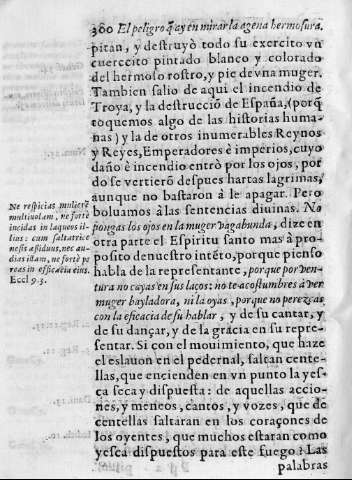 360 El peligro q̃ ay en mirar la agena hermosura.
pitan, y destruyò todo su exercito vn
cuerecito pintado blanco y colorado
del hermoso rostro, y pie de vna muger.
Tambien salio de aqui el incendio de
Troya, y la destrucciõ de España, (porq̃
toquemos algo de las historias huma-
nas) y la de otros inumerables Reynos
y Reyes, Emperadores è imperios, cuyo
daño è incendio entrò por los ojos, por
do se vertierõ despues hartas lagrimas,
aunque no bastaron à le apagar. Pero
boluamos à las sentencias diuinas. No
pongas los ojos en la muger vagabunda, dize en
otra parte el Espiritu santo mas à pro-
posito de nuestro intẽto, porque pienso
habla de la representante, porque por ven-
tura no cuyas en sus laços: no te acostumbres à ver
muger bayladora, ni la oyas, porque no perezcas
con la eficacia de su hablar, y de su cantar, y
de su dançar, y de la gracia en su repre-
sentar. Si con el mouimiento, que haze
el eslauon en el pedernal, saltan cente-
llas, que encienden en vn punto la yes-
ca seca y dispuesta: de aquellas accio-
nes, y meneos, cantos, y vozes, que de
centellas saltaran en los coraçones de
los oyentes, que muchos estaran como
yesca dispuestos para este fuego? Las
palabras
Ne respicias mulierẽ
multiuolam, ne fortè
incidas in laqueos il-
lius: cum saltatrice
ne sis assiduus, nec au-
dias illam, ne fortè pe
reas in efficacia eius.
Eccl 9.3.